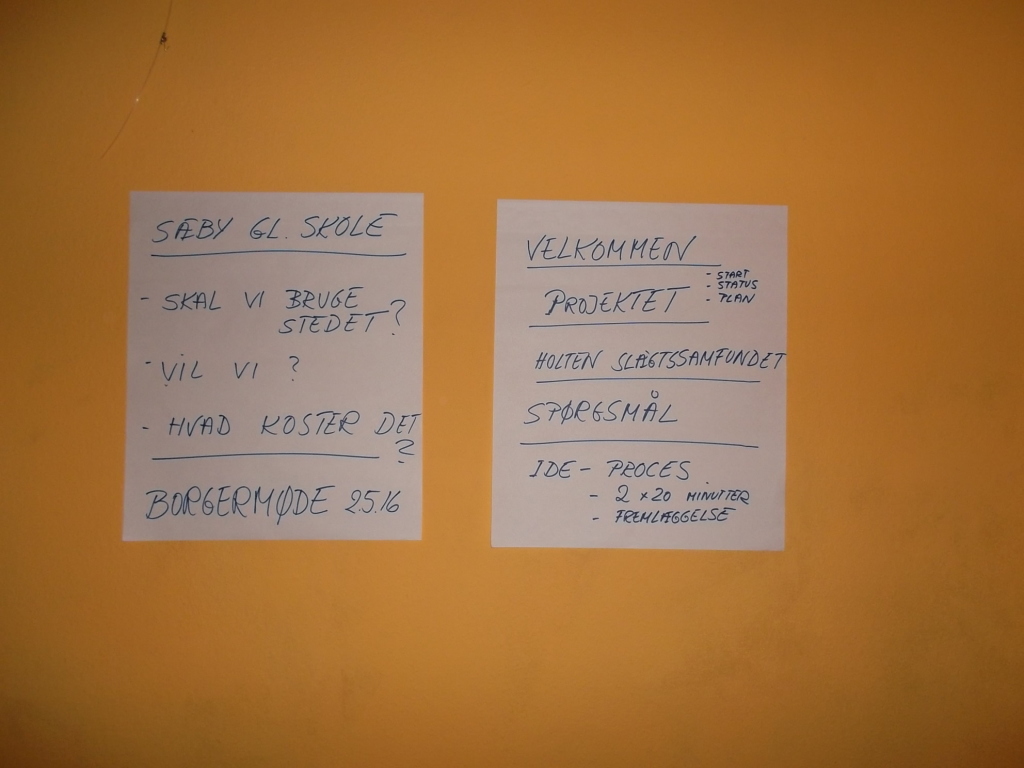 SÆBY GL. SKOLE
- SKAL VI BRUGE
STEDET?
- VIL VI ?
- HVAD KOSTER DET
?
BORGERMØDE 2.5.16
VELKOMMEN
PROJEKTET
- START
- STATUS
- PLAN
HOLTEN SLÆGTSSAMFUNDET
SPØRGSMÅL
IDE - PROCES
- 2 x 20 MINUTTER
- FREMLÆGGELSE